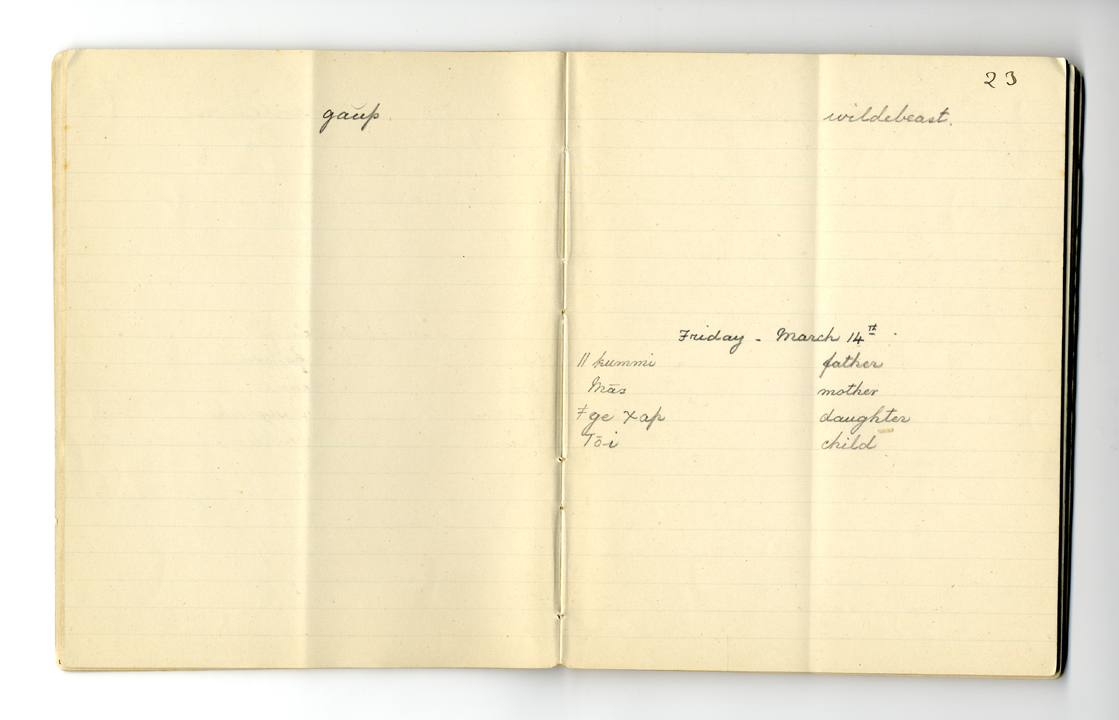 23
gaŭp. wildebeast.
Friday - March 14th.
ǁ kummi father
Mās mother
ǂge χap daughter
Tō-i child